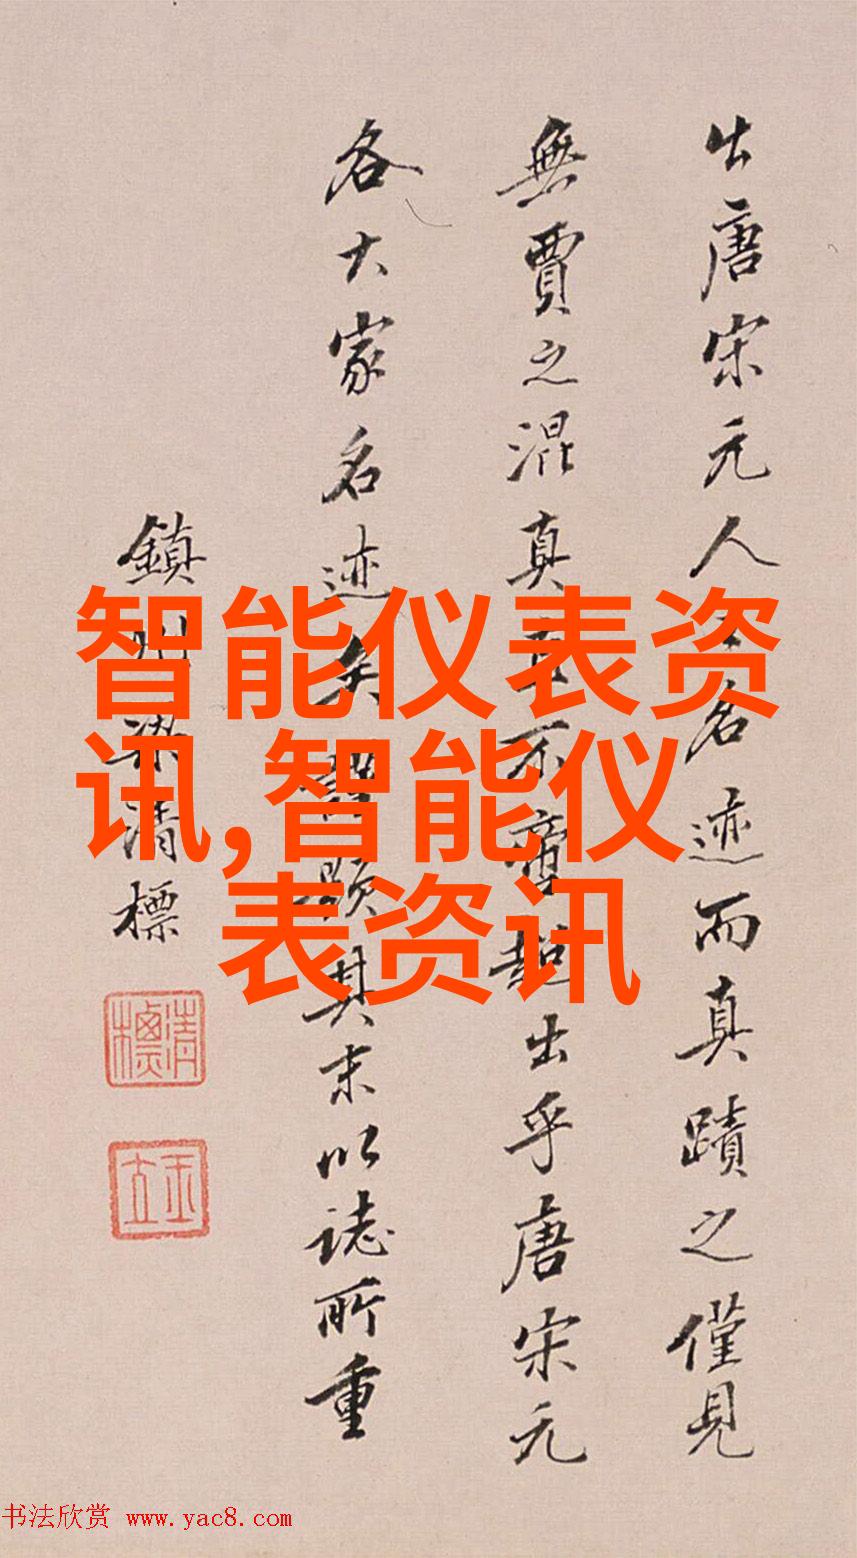 出唐宋元人名迹而真蹟之僅見
無賈之混真不啻超出乎唐宋元
各大家名迹矣題其末以誌所重
鎮州梁清標
清標
玉立
智能仪表资
讯,智能仪
表资讯
书法欣赏 www.yac8.com